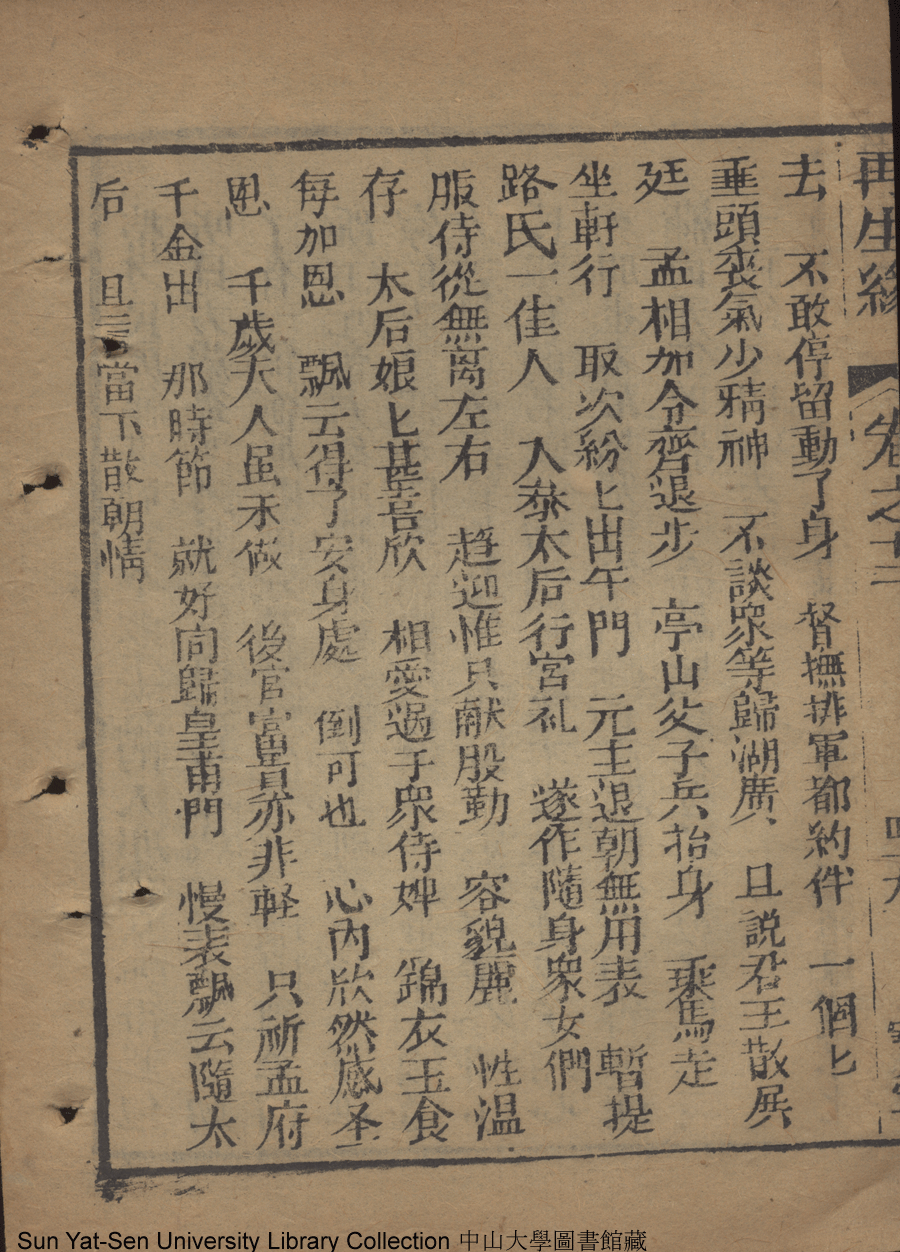 再生緣 卷之十三
去 不敢停留動了身 督撫排軍都約伴 一個匕
垂頭喪氣少精神 不談衆等歸湖廣 且説君王散
廷 孟相加令齊退步 亭山父子兵抬身 乘馬走
坐軒行 取次紛匕出午門 元主退朝無用表 暫提
路氏一佳人 入叅太后行宮礼 遂作隨身衆女們
服侍從無离左右 趋迎惟只献殷勤 容貌麗 性温
存 太后娘匕甚喜欣 相愛過于衆侍婢 錦衣玉食
每加恩 飄云得了安身處 倒可也 心内欣然感圣
恩 千歲夫人虽未做 後官富貴亦非軽 只祈孟府
千金出 那時節 就好同歸皇甫門 慢表飄云隨太
后 且言當下散朝情
Sun Yat-Sen University Library Collection 中山大學圖書館藏